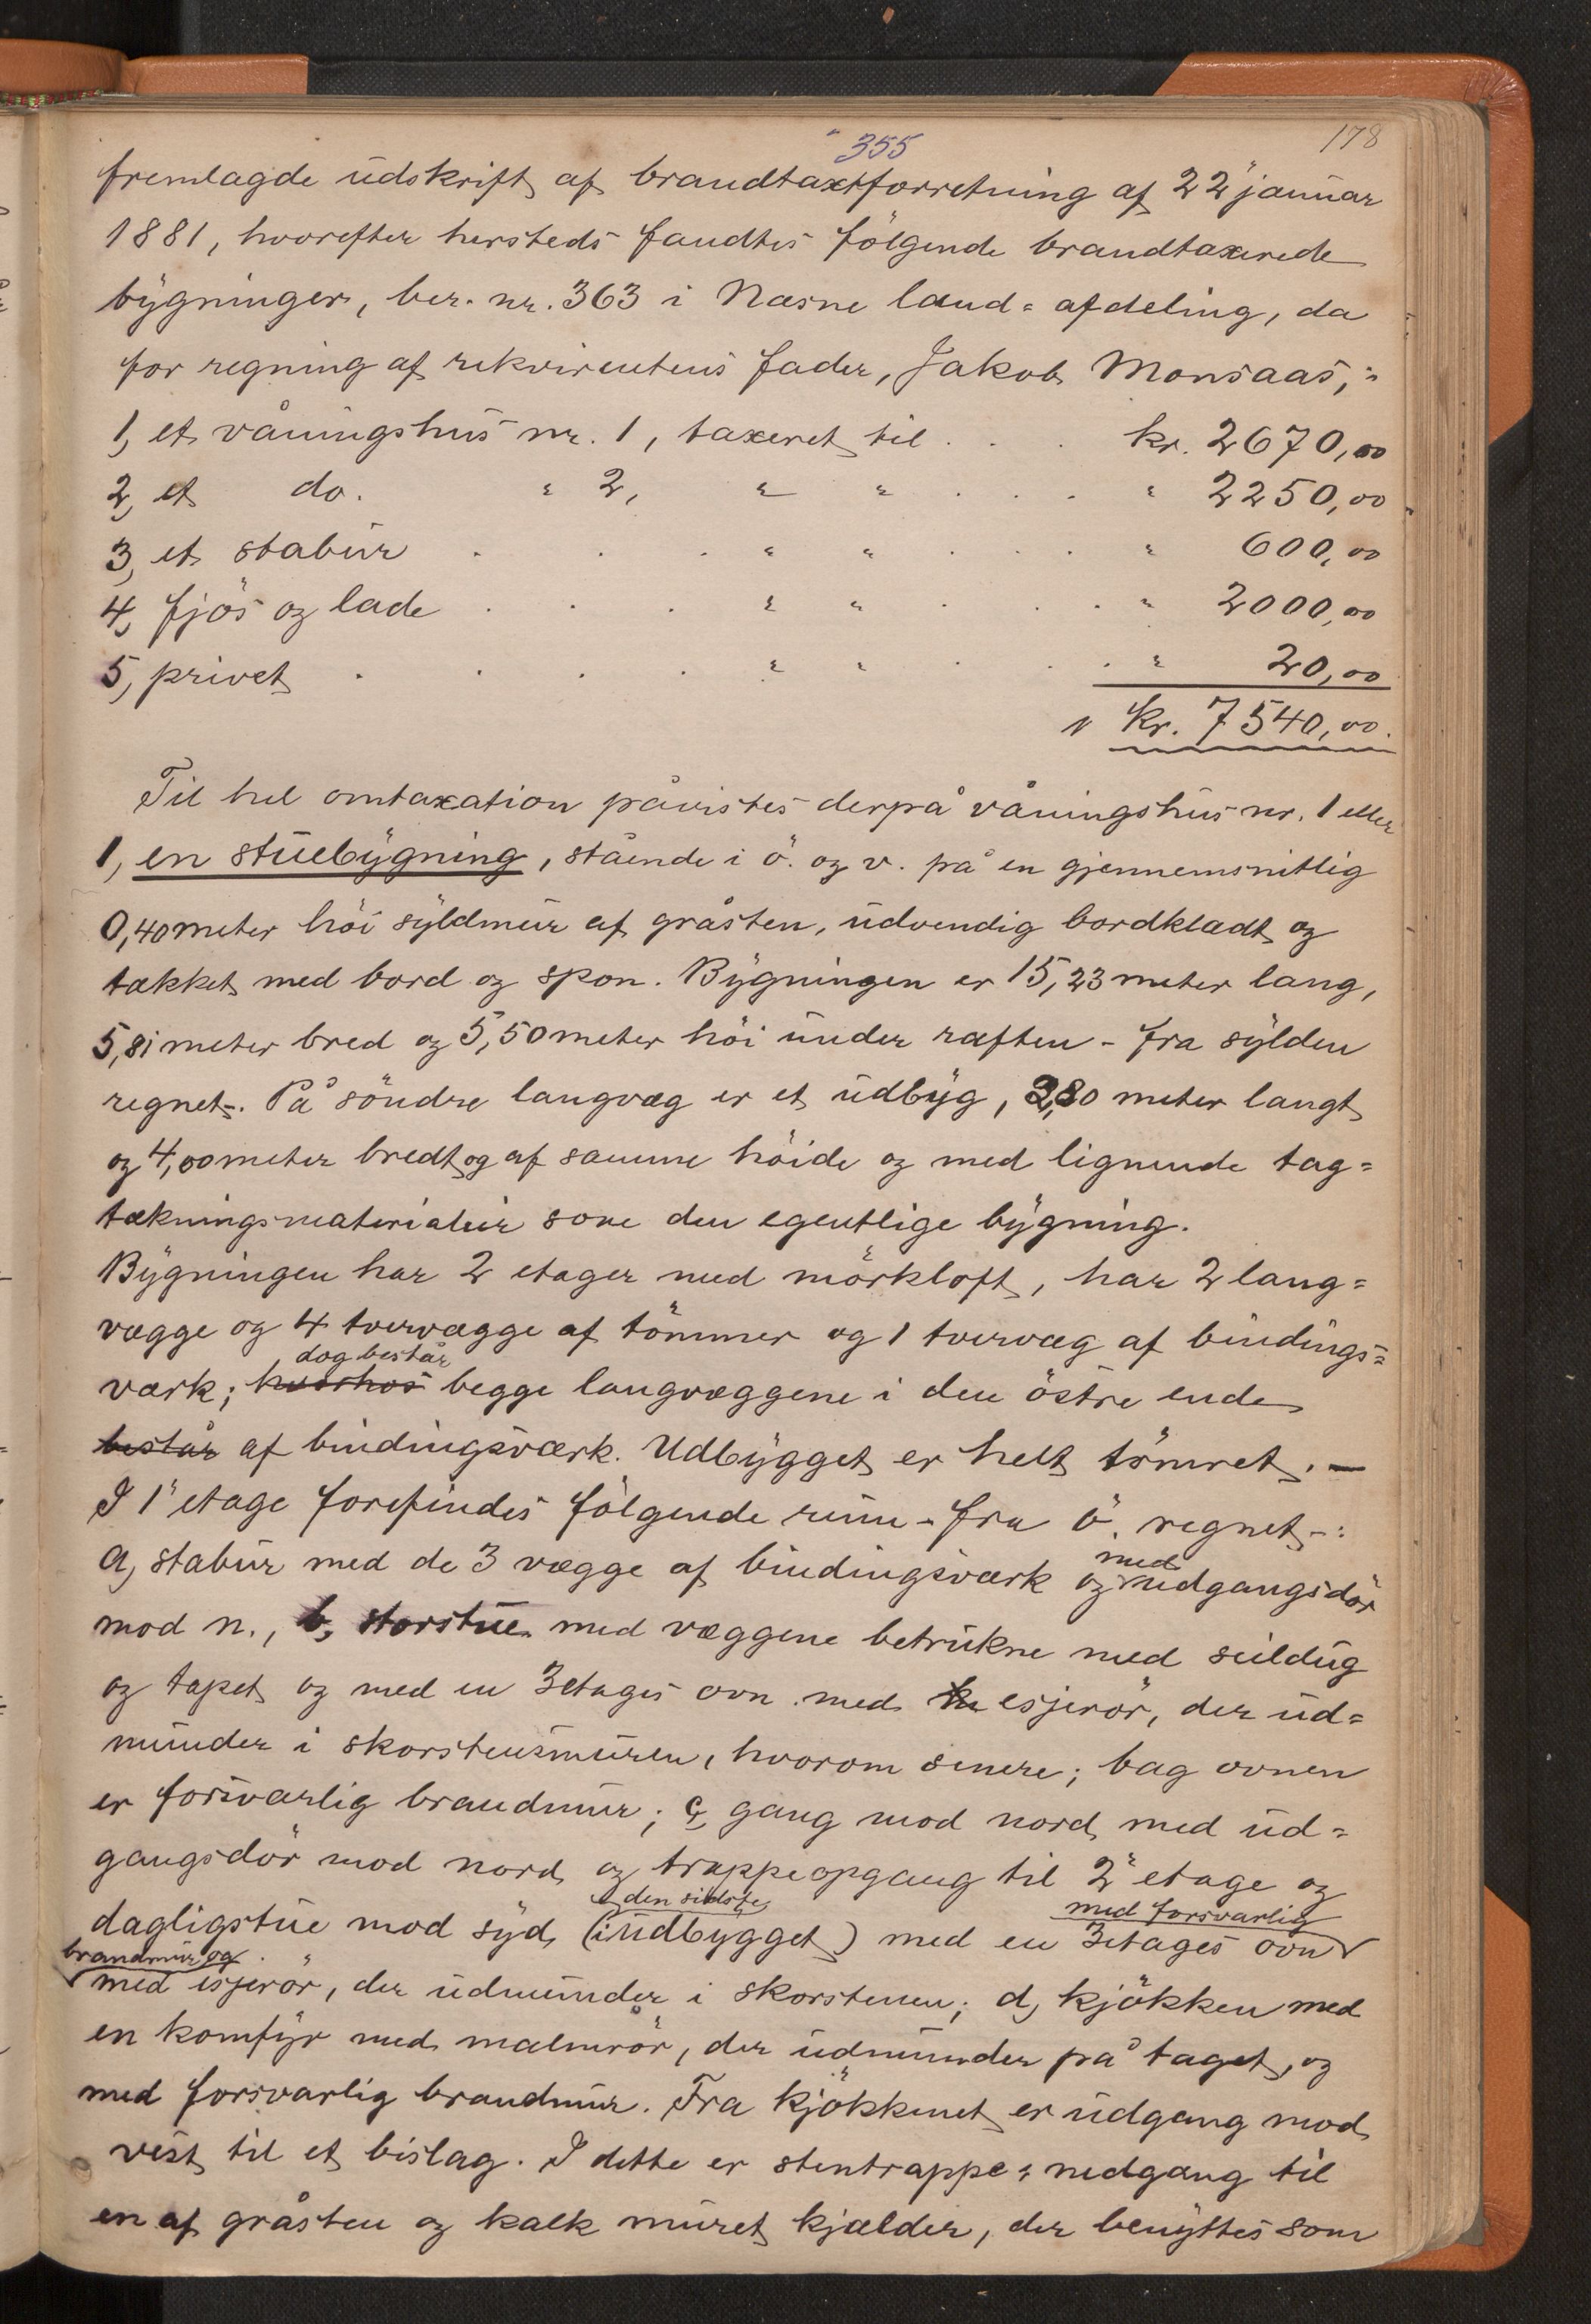 355
178
fremlagde udskrift af brandtaxtforretning af 22' januar
1881, hvorefter hersteds fandtes følgende brandtaxerede
bygninger, ber. nr. 363 i Næsne land= afdeling, da
for regning af rekvirentens fader, Jakob Monsaas,:
1, et våningshus nr. 1, taxeret til . . . kr. 2670,00
2, et do. " 2, " " . . " 2250,00
3, et stabur . . . " " . . . " 600,00
4, fjøs og lade . . . " " . . . " 2000,00
5, privet . . . . " " . . . " 20,00
kr. 7540,00.
Til hel omtaxation påvistes derpå våningshus nr. 1 eller
1, en stuebygning, stående i ö. og v. på en gjennemsnitlig
0,40 meter höi syldmur af gråsten, udvendig bordklædt og
tækket med bord og spon. Bygningen er 15,23 meter lang,
5,81 meter bred og 5,50 meter höi under raften - fra sylden
regnet-. På söndre langvæg er et udbyg, 3,80 meter langt
og 4,00 meter bredt og af samme höide og med lignende tag=
tækningsmaterialier som den egentlige bygning.
Bygningen har 2 etager med mörkloft, har 2 lang=
vægge og 4 tvervægge af tömmer og 1 tvervæg af bindings=
dog består
værk; hvorhos begge langvæggene i den östre ende
består af bindingsværk. Udbygget er helt tömret. —
I 1' etage forefindes fölgende rum - fra ö. regnet -:
med
a, stabur med de 3 vægge af bindingsværk og udgangsdör
mod n., b, storstue med væggene betrukne med seildug
og tapet og med en 3etages ovn med esjerör, der ud=
munder i skorstensmuren, hvorom senere; bag ovnen
er forsvarlig brandmur; c, gang mod nord med ud=
gangsdör mod nord og trappeopgang til 2' etage og
den sidste
med forsvarlig
dagligstue mod syd, (i udbygget) med en 3etages ovn
brandmur og
med esjerör, der udmunder i skorstenen; d, kjökken med
en komfyr med malmrör, der udmunder på taget, og
med forsvarlig brandmur. Fra kjökkenet er udgang mod
vest til et bislag. I dette er stentrappe= nedgang til
en af gråsten og kalk muret kjælder, der benyttes som